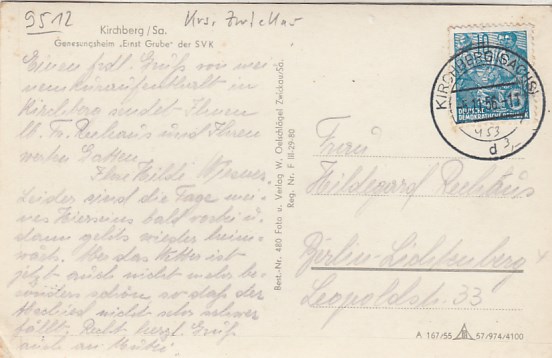 9512
Krs. Zwickau
Kirchberg / Sa.
Genesungsheim „Ernst Grube" der SVK
Einen frdl. Gruß von mei
nem Kuraufenthalt in
Kirchberg sendet Ihnen
lb. Fr. Rehaus und Ihrem
werten Gatten
Ihre Hilde
Leider sind die Tage mei
nes Hierseins bald vorbei u.
dann gehts wieder heim-
wärts. Aber das Wetter ist
jetzt auch nicht mehr be-
sonders schön so daß der
Abschied nicht so schwer
fällt. Recht herzl. Grüße
auch an
Best.-Nr. 480 Foto u. Verlag W. Oelschlägel Zwickau/Sa.
Reg. Nr. F III-29-80
10
DEUTSCHE
DEMOKRATISCHE REPUBLIK
KIRCHBERG (SACHS)
d
Frau
Hildegard
Berlin-Lichtenberg 4
Leopoldstr. 33
A 167/55 57/974/4100